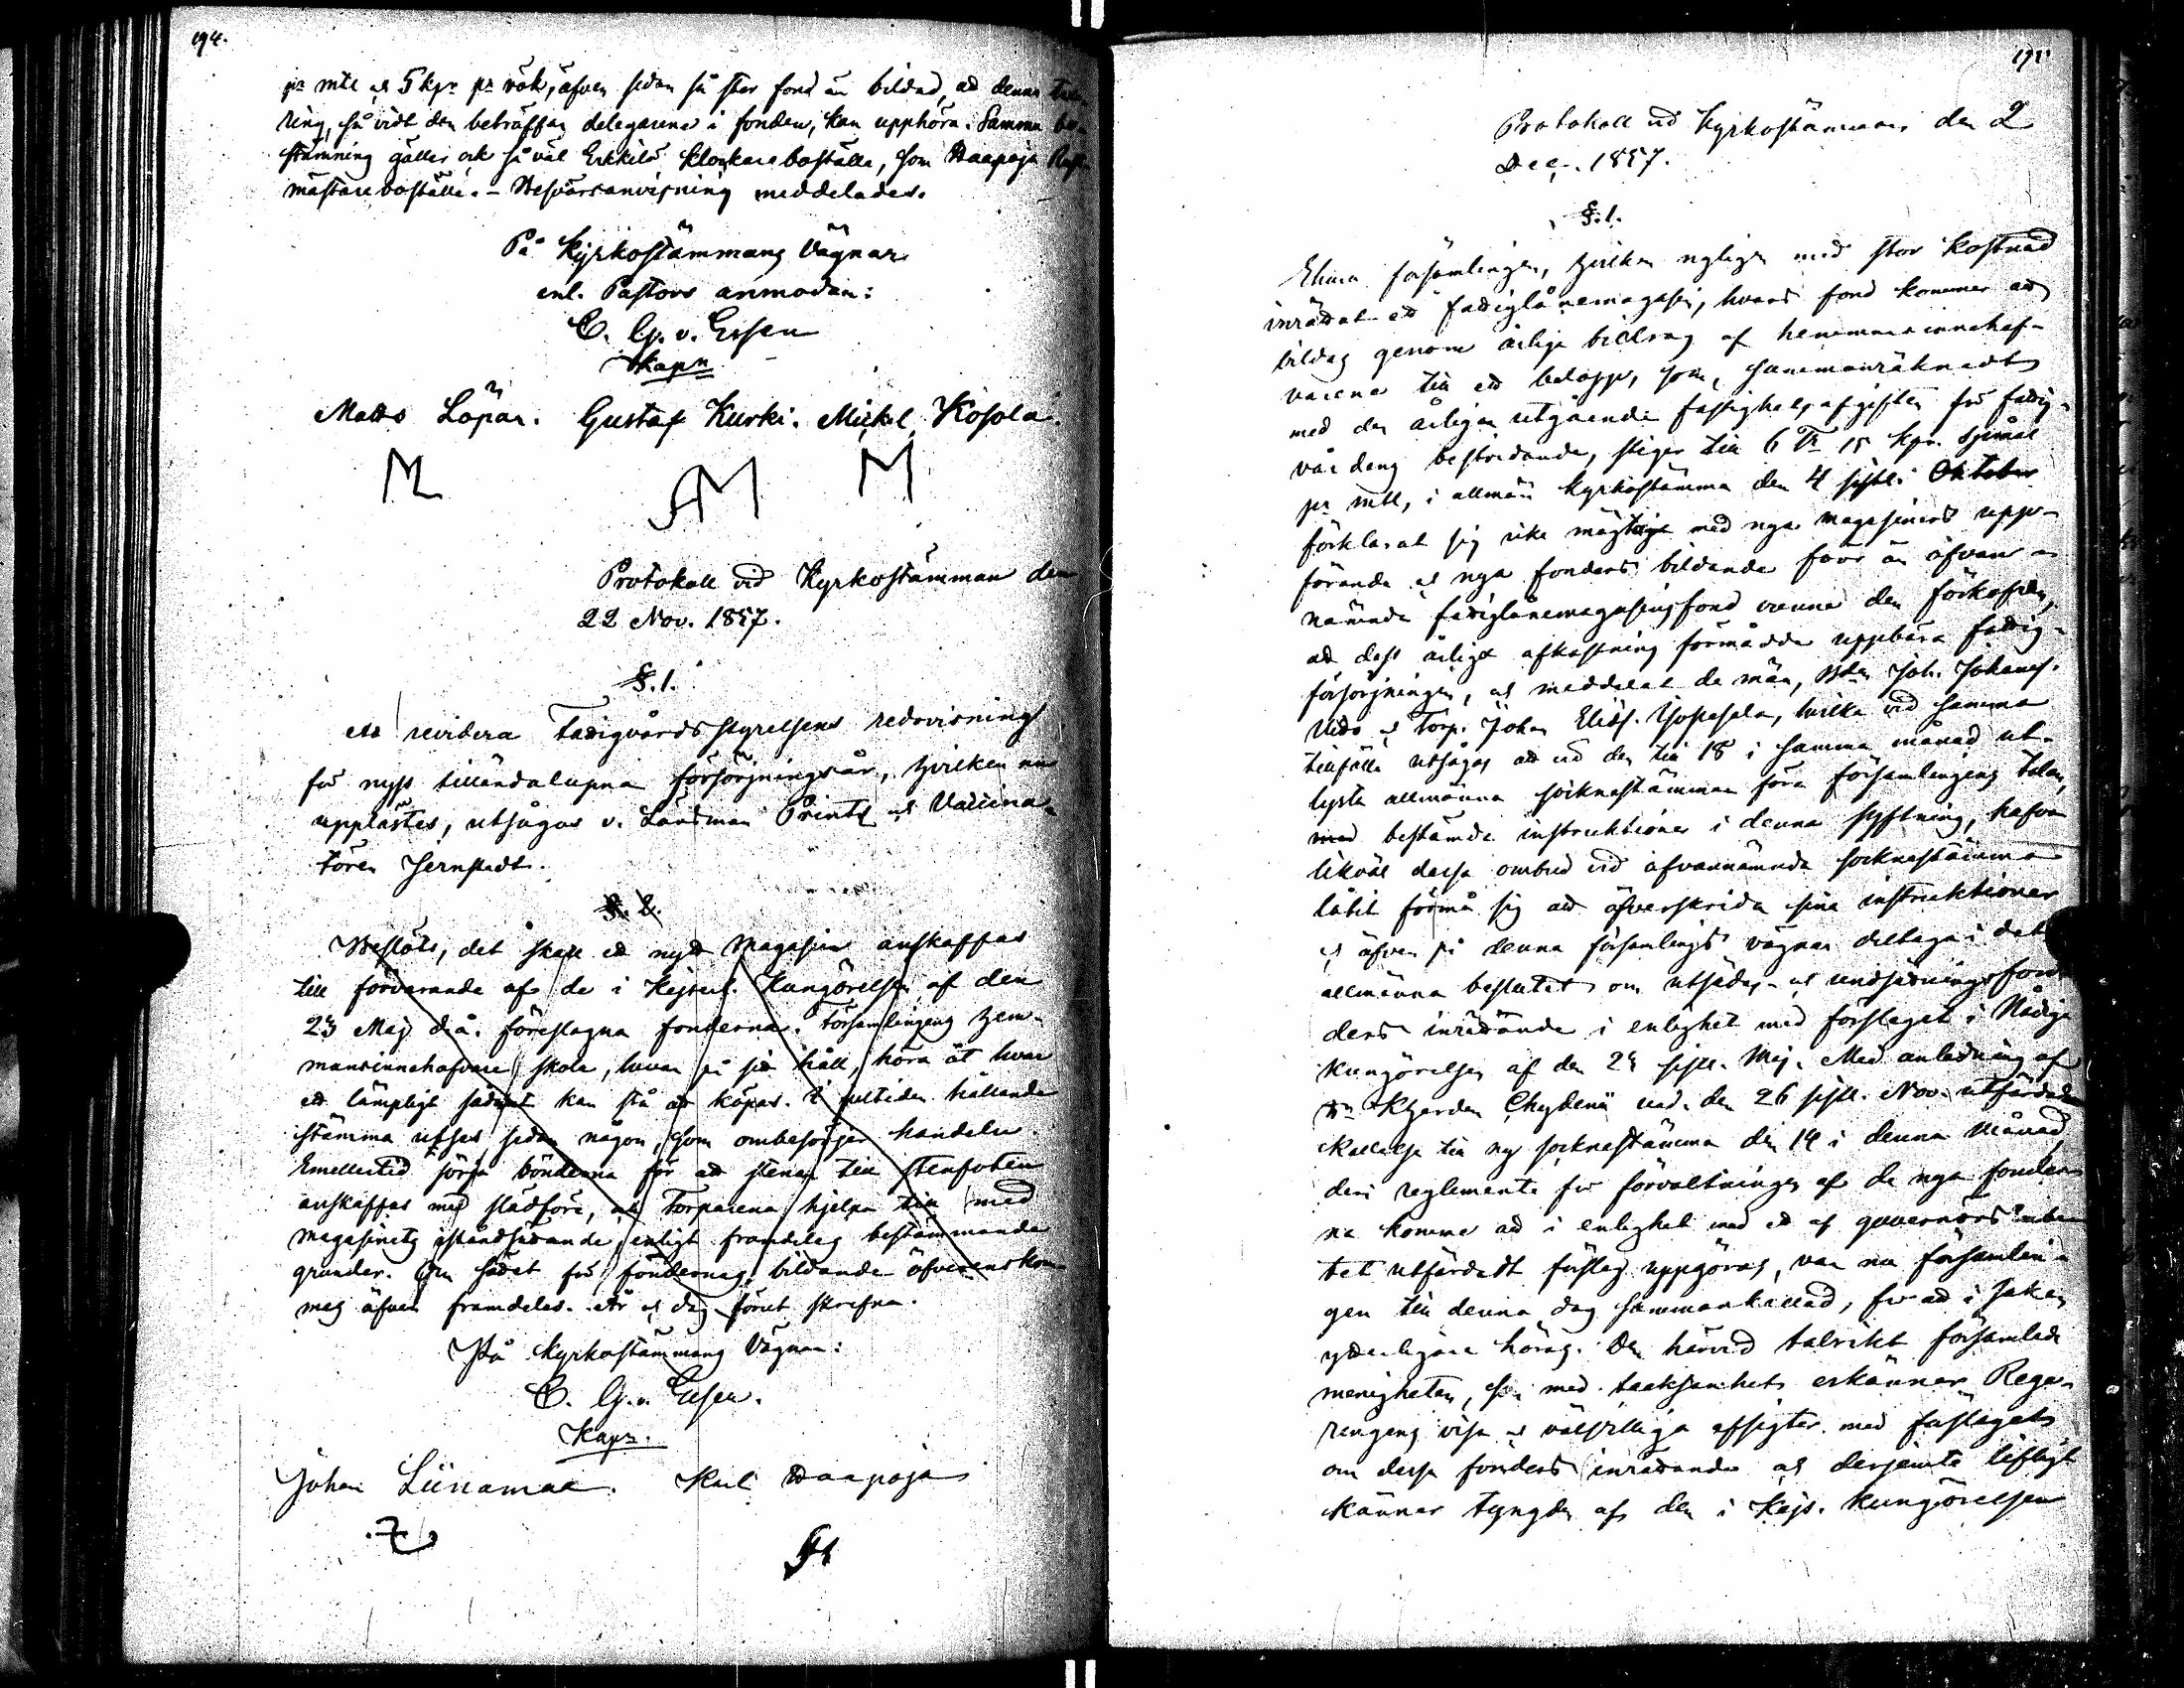 194.
pr mtl o. 5 kpr pr rök, äfven sedan så stor fond är bildad, att denna
ring, så vidt den beträffar delegarena i fonden, kan upphöra. Samma be-
stämning gäller ock så väl Erkkilä klockareboställe, som Haapoja
mästareboställe. - Besvärsanvisning meddelades.
På Kyrkostämmans Vägnar
enl. Pastors anmodan:
C. G. v. Essen
Kapn
Matts Löpar. Gustaf Kurki. Mickel Kosola.
Protokoll vid Kyrkostämman den
22 Nov. 1857.
§. 1.
att revidera Fattigvårdsstyrelsens redovisning
för nyss tilländalupna försörjningsår, hvilken nu
upplästes, utsågos v. Länsman Printz o. Vaccina-
tören Jernstedt.
§. 2.
Beslöts, det skall ett nytt Magasin anskaffas
till förvarande af de i Kejserl. Kungörelsen af den
23 Maj d. å. föreslagna fonderna. Församlingens hem-
mansinnehafvare skola, hvar på sitt håll, höra åt hvar
ett lämpligt sådant kan stå att köpas. I jultiden hållande
stämma utses sedan någon, som ombesörjer handeln.
Emellertid sörja bönderna för att stenar till stenfoten
anskaffas med slädföre, och Torparena hjelpa till med
magasinets iståndsättande enligt framdeles bestämmande
grunder. Om sädet för fondernas bildande öfverenskom-
mes äfven framdeles. År o. dag förut skrefna.
På Kyrkostämmans Vägnar:
C. G. v. Essen.
Kapn.
Johan Liinamaa. Karl Haapoja
Protokoll vid Kyrkostämman den 2
Dec. 1857.
§. 1.
församlingen, hvilken nyligen med stor kostnad
inrättat ett fattiglånemagasin, hvars fond kommer att
bildas genom årliga bidrag af hemmansinnehaf-
varena till ett belopp, som, sammanräknadt
med den årligen utgående fastighetsafgiften för fattig-
vårdens bestridande, stiger till 6 Tr 15 kpr. spimål
pr mtl, i allmän kyrkostämma den 4 sistl. Oktober
förklarat sig icke mägtige med nya magasiners upp-
förande o. nya fonders bildande förr än ofvan-
nämnda fattiglånemagasinsfond vunne den förkofran,
att dess årliga afkastning förmådde uppbära fattig-
försörjningen, o. meddelat de män, Bdn Joh. Johanss.
o. Torp. Johan Eliass. hvilka vid samma
tillfälle utsågos att vid den till 18 i samma månad ut-
lysta allmänna socknestämman föra församlingens talan,
med bestämda instruktioner i denna syftning, hafva
likväl dessa ombud vid ofvannämnda socknestämma
låtit förmå sig att öfverskrida sina instruktioner
o. äfven på denna församlings vägnar deltaga i det
allmänna beslutet om utsädes- o. undsättningsfon-
ders inrättande i enlighet med förslaget i Nådiga
Kungörelsen af den 23 sistl. Maj. Med anledning af
Hr Kh�erden Chydenii und. den 26 sistl. Nov. utfärdade
kallelse till ny socknestämma den 14 i denna månad,
deri reglemente för förvaltningen af de nya fonder-
na komme att i enlighet med ett af guvernörsembe-
tet utfärdadt förslag uppgöras, var nu församlin-
gen till denna dag sammankallad, för att i saken
ytterligare höras. Den härvid talrikt församlade
menigheten, som med tacksamhet erkänner Rege-
ringens visa o. välvilliga afsigter med förslaget
om dessa fonders inrättande o. derjemte lifligt
känner tyngden af den i Kejs. Kungörelsen